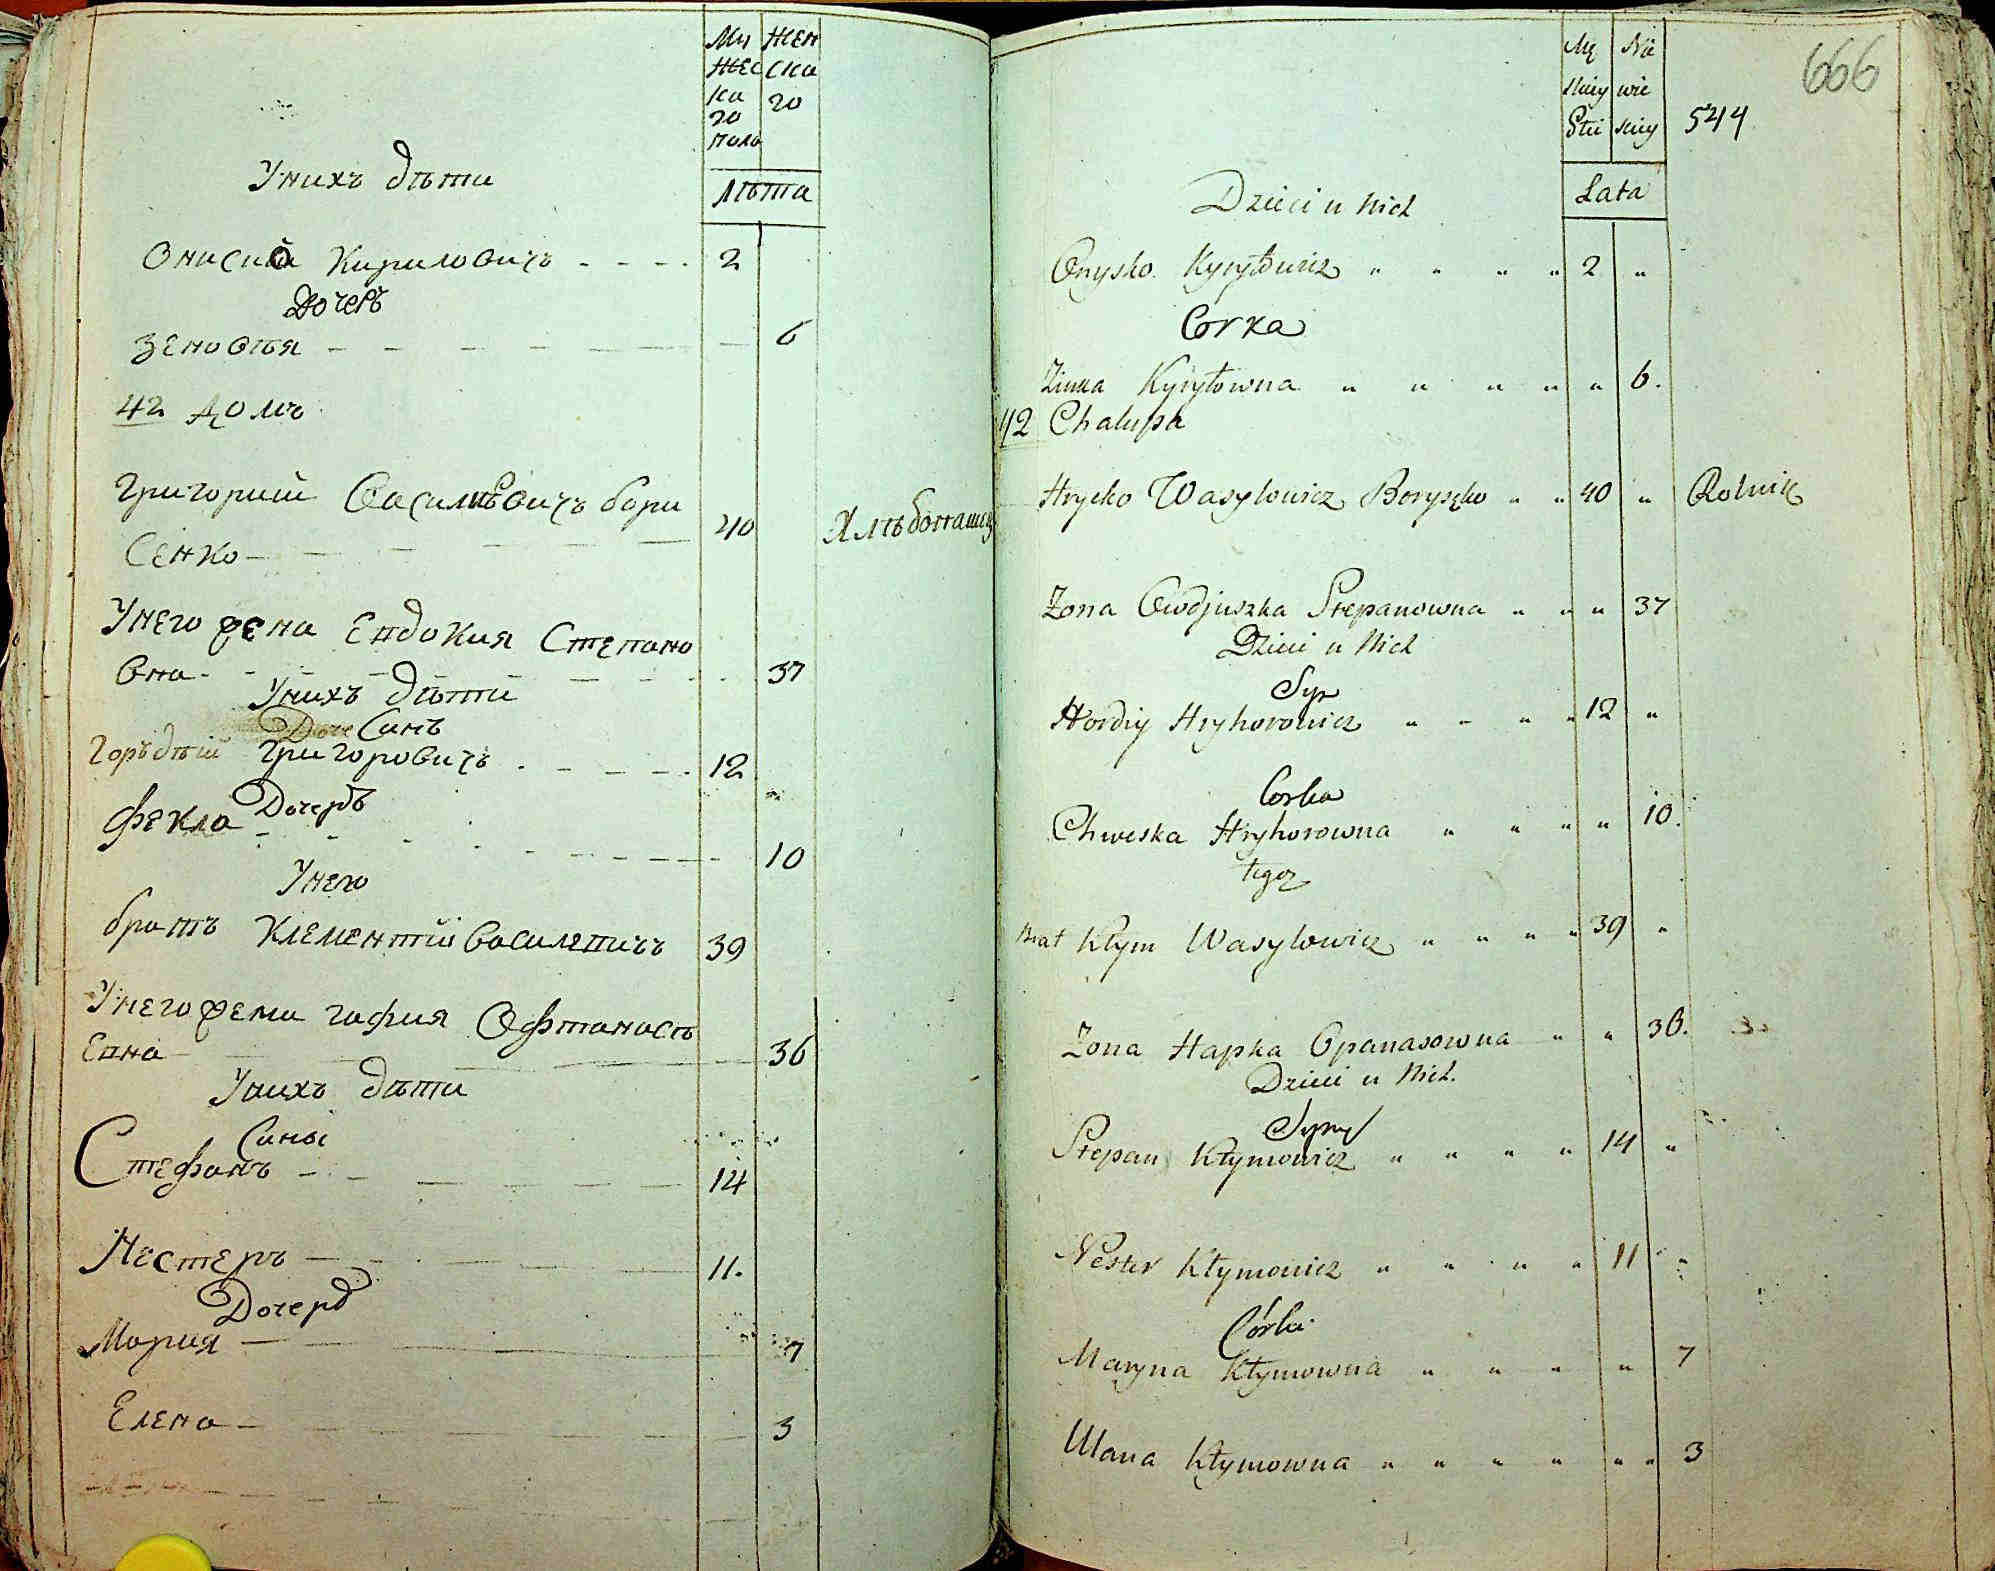 Му
жес
ка
го
пола
жен
ска
го
лѣта
Унихъ дѣти
Онисий Кириловичъ 2
Дочерь
Зеновѣя 6
42 домъ
Григорий Василѣвичъ Бори
сенко 40 Хлѣбопашец
Унего жена Евдокия Степано
вна 37
Унихъ дѣти
Синъ
Горьдѣй Григоровичъ 12
Дочеръ
Фекла 10
Унего
братъ Клементий Василевичъ 39
Унего жена Гафия Офтанасѣ
евна 36
Унихъ дѣти
Сины
Стефанъ 14
Нестеръ 11.
Дочерь
Мария 7
Елена 3
666
544
Mę
skiey
Płci
Nie
wie
skiey
Lata
Dzieci u Nich
Onysko Kyryłowicz 2 "
Corka
Zinka Kyryłowna " 6.
42 Chalupa
Hrycko Wasylowicz Boryszko 40 " Rolnik
Zona Owdjuszka Stepanowna " 37
Dzieci u Nich
Syn
Hordiy Hryhorowicz 12 "
Corka
Chweska Hryhorowna " 10.
tegoz
Brat Kłym Wasylowicz 39 "
Zona Hapka Opanasowna " 36.
Dzieci u Nich.
Syny
Stepan Kłymowicz 14 "
Nester Kłymowicz 11 "
Córki
Maryna Kłymowna " 7
Ulana Kłymowna " 3